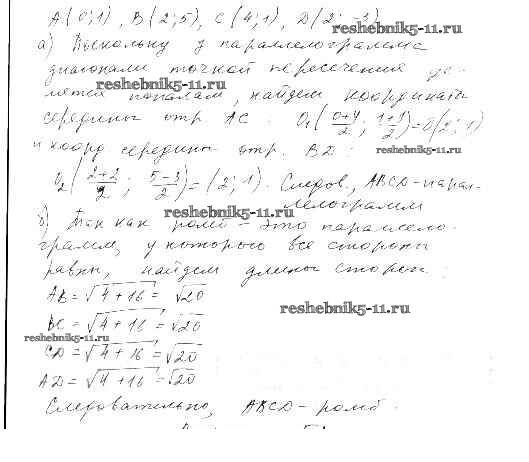 A(0;1), B(2;5), C(4;1), D(2;-3)
reshebnik5-11.ru
а) Поскольку у параллелограмма
диагонали точкой пересечения де-
reshebnik5-11.ru
лятся пополам, найдем координаты
середины отр. AC: O₁(0+4/2; 1+1/2)=O(2;1)
и коорд середины отр. BD:
reshebnik5-11.ru
O₂(2+2/2; 5-3/2)=(2;1). Следов., ABCD-парал-
лелограмм
reshebnik5-11.ru
б) Так как ромб - это параллело-
грамм, у которого все стороны
равны, найдем длины сторон:
AB=√4+16=√20
reshebnik5-11.ru
BC=√4+16=√20
reshebnik5-11.ru
CD=√4+16=√20
AD=√4+16=√20
Следовательно, ABCD-ромб.